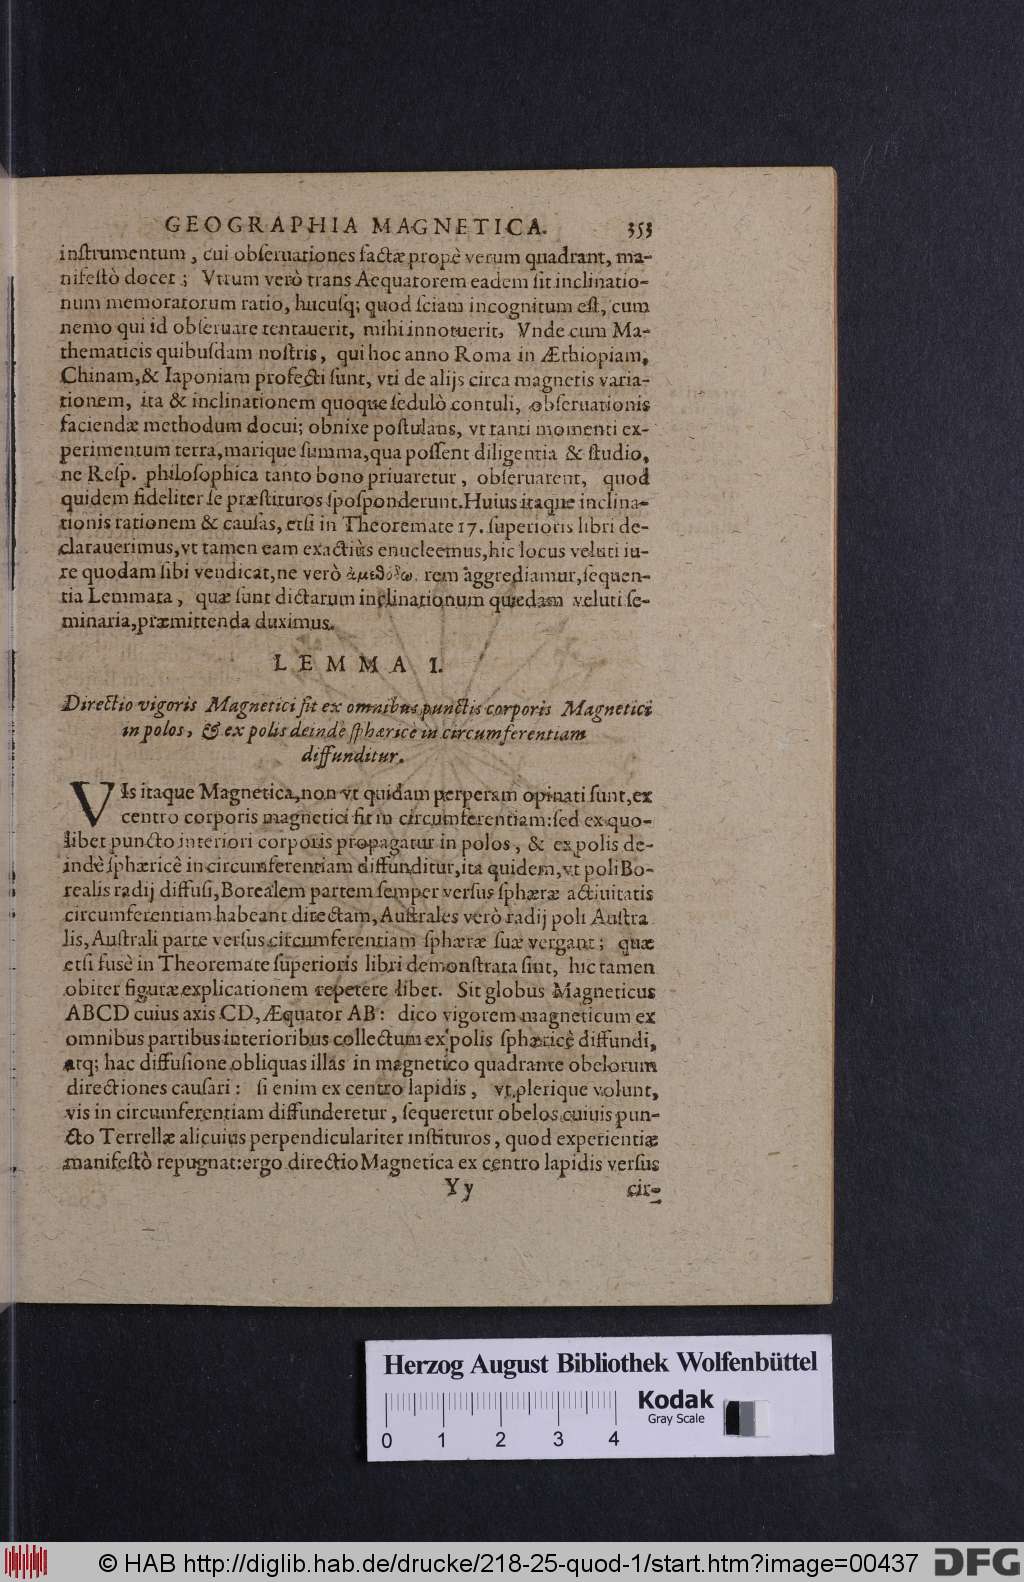 GEOGRAPHIA MAGNETICA. 353
inſtrumentum, cui obſeruationes factæ propè verum quadrant, ma-
nifeſtò docet; Vtrum verò trans Aequatorem eadem ſit inclinatio-
num memoratorum ratio, hucuſq; quod ſciam incognitum eſt, cum
nemo qui id obſeruare tentauerit, mihi innotuerit, Vnde cum Ma-
thematicis quibuſdam noſtris, qui hoc anno Roma in Æthiopiam,
Chinam, & Iaponiam profecti ſunt, vti de alijs circa magnetis varia-
tionem, ita & inclinationem quoque ſedulò contuli, obſeruationis
faciendæ methodum docui; obnixe poſtulans, vt tanti momenti ex-
perimentum terra, marique ſumma, qua poſſent diligentia & ſtudio,
ne Reſp. philoſophica tanto bono priuaretur, obſeruarent, quod
quidem fideliter ſe præſtituros ſpoſponderunt. Huius itaque inclina-
tionis rationem & cauſas, etſi in Theoremate 17. ſuperioris libri de-
clarauerimus, vt tamen eam exactiùs enucleemus, hic locus veluti iu-
re quodam ſibi vendicat, ne verò ἀμεθόδω. rem aggrediamur, ſequen-
tia Lemmata, quæ ſunt dictarum inclinationum quædam veluti ſe-
minaria, præmittenda duximus.
LEMMA I.
Directio vigoris Magnetici fit ex omnibus punctis corporis Magnetici
in polos, & ex polis deindè ſphæricè in circumferentiam
diffunditur.
VIs itaque Magnetica, non vt quidam perperam opinati ſunt, ex
centro corporis magnetici fit in circumferentiam: ſed ex quo-
libet puncto interiori corporis propagatur in polos, & ex polis de-
indè ſphæricè in circumferentiam diffunditur, ita quidem, vt poli Bo-
realis radij diffuſi, Borealem partem ſemper verſus ſphæræ actiuitatis
circumferentiam habeant directam, Auſtrales verò radij poli Auſtra
lis, Auſtrali parte verſus circumferentiam ſphæræ ſuæ vergant; quæ
etſi fusè in Theoremate ſuperioris libri demonſtrata ſint, hic tamen
obiter figuræ explicationem repetere libet. Sit globus Magneticus
ABCD cuius axis CD, Æquator AB: dico vigorem magneticum ex
omnibus partibus interioribus collectum ex polis ſphæricè diffundi,
atq; hac diffuſione obliquas illas in magnetico quadrante obelorum
directiones cauſari: ſi enim ex centro lapidis, vt plerique volunt,
vis in circumferentiam diffunderetur, ſequeretur obelos cuiuis pun-
cto Terrellæ alicuius perpendiculariter inſtituros, quod experientiæ
manifeſtò repugnat: ergo directio Magnetica ex centro lapidis verſus
Yy cir-
Herzog August Bibliothek Wolfenbüttel
Kodak
Gray Scale
0 1 2 3 4
© HAB http://diglib.hab.de/drucke/218-25-quod-1/start.htm?image=00437 DFG